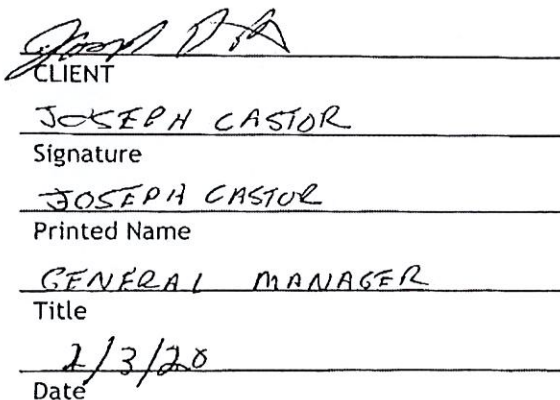 CLIENT
JOSEPH CASTOR
Signature
JOSEPH CASTOR
Printed Name
GENERAL MANAGER
Title
2/3/20
Date